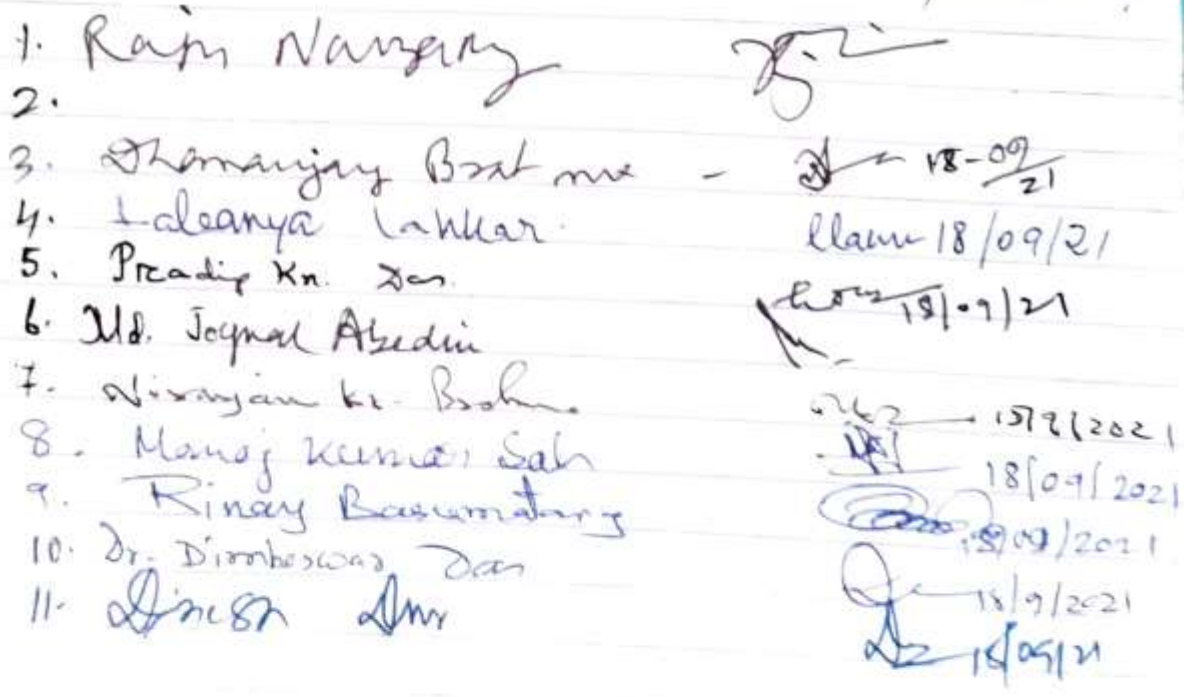 1. Raju Narzary
2.
3. Dhananjay Brahma - 18-09/21
4. Lakanya Lahkar 18/09/21
5. Pradip Kr. Das 18/09/21
6. Md. Joynal Abedin
7. Niranjan Kr. Brahma 18/9/2021
8. Manoj Kumar Sah 18/09/2021
9. Rinay Basumatary 18/09/2021
10. Dr. Dimbeswar Das 18/9/2021
11. Dinesh 18/09/21